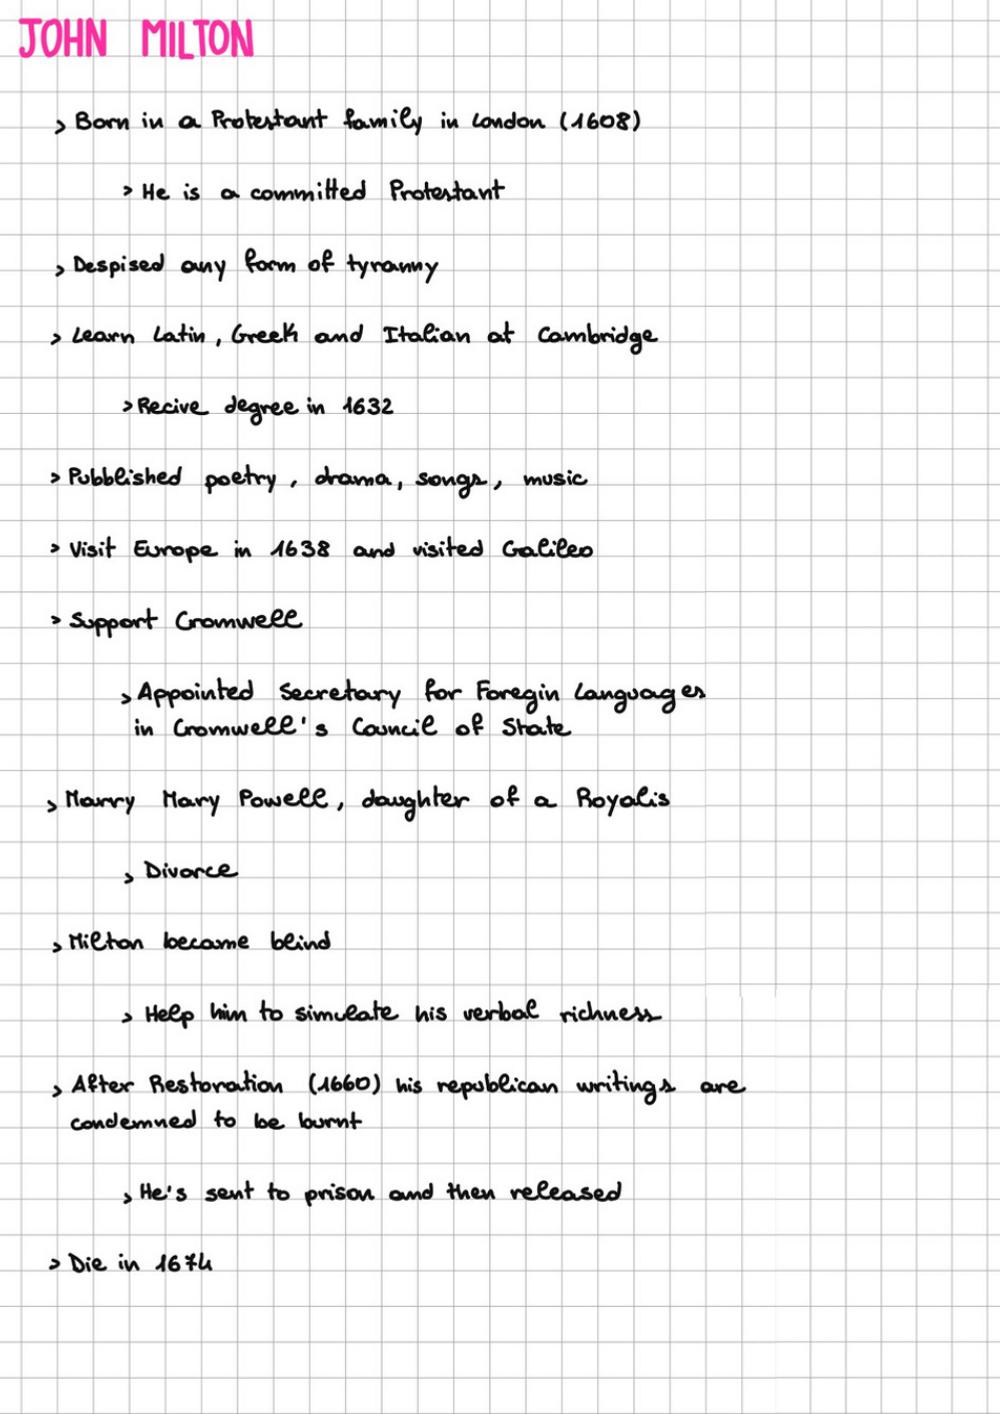 JOHN MILTON
> Born in a Protestant family in London (1608)
> He is a committed Protestant
> Despised any form of tyranny
> Learn Latin, Greek and Italian at Cambridge
> Recive degree in 1632
> Pubblished poetry, drama, songs, music
> Visit Europe in 1638 and visited Galileo
> Support Cromwell
> Appointed Secretary for Foregin Languages
in Cromwell's Council of State
> Marry Mary Powell, daughter of a Royalis
> Divorce
> Milton became blind
> Help him to simulate his verbal richness
> After Restoration (1660) his republican writings are
condemned to be burnt
> He's sent to prison and then released
> Die in 1674